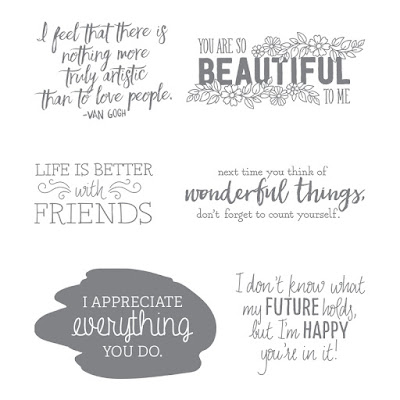 I feel that there is
nothing more
truly artistic
than to love people.
-VAN GOGH
YOU ARE SO
BEAUTIFUL
TO ME
LIFE IS BETTER
with
FRIENDS
next time you think of
wonderful things,
don't forget to count yourself.
I APPRECIATE
everything
YOU DO.
I don't know what
my FUTURE holds,
but I'm HAPPY
you're in it!